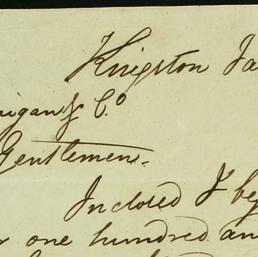 Kingston Ja
igan & Co
Gentlemen.
Inclosed I beg
one hundred an